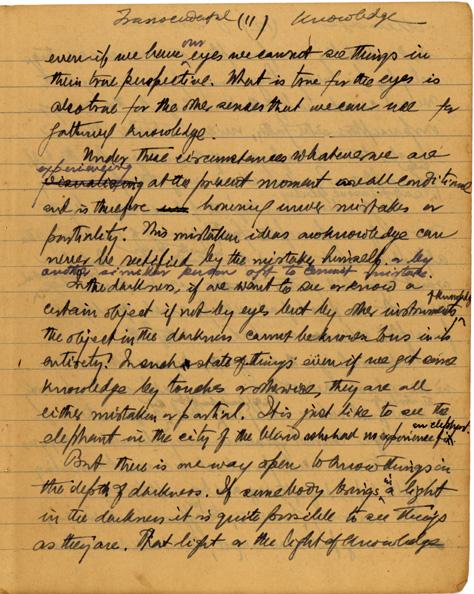 Transcendental (11) Knowledge
even if we have our eyes we cannot see things in
their true perspective. What is true for the eyes is
also true for the other senses that we can use for
gathering knowledge.
Under these circumstances whatever we are
experiencing at the present moment are all conditional
and is therefore homing under mistakes or
partiality. The mistaken ideas or knowledge can
never be rectified by the mistaker himself or by
another similar person apt to commit mistake.
In the darkness, if we want to see or know a
certain object if not by eyes but by other instruments of knowledge
the object in the darkness cannot be known to us in its
entirety. In such a state of things even if we get some
knowledge by touches or otherwise, they are all
either mistaken or partial. It is just like to see the
elephant in the city of the blind who had no experience of an elephant.
But there is one way open to know things in
the depth of darkness. If somebody brings in a light
in the darkness it is quite possible to see things
as they are. That light or the light of knowledge